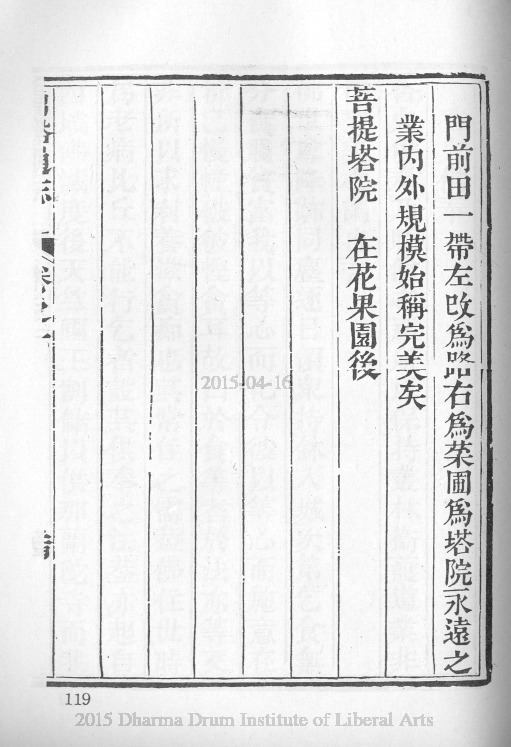 門前田一帶左改爲路右爲菜圃爲塔院永遠之
業内外規模始稱完美矣
菩提塔院 在花果園後
2015-04-16
119
2015 Dharma Drum Institute of Liberal Arts